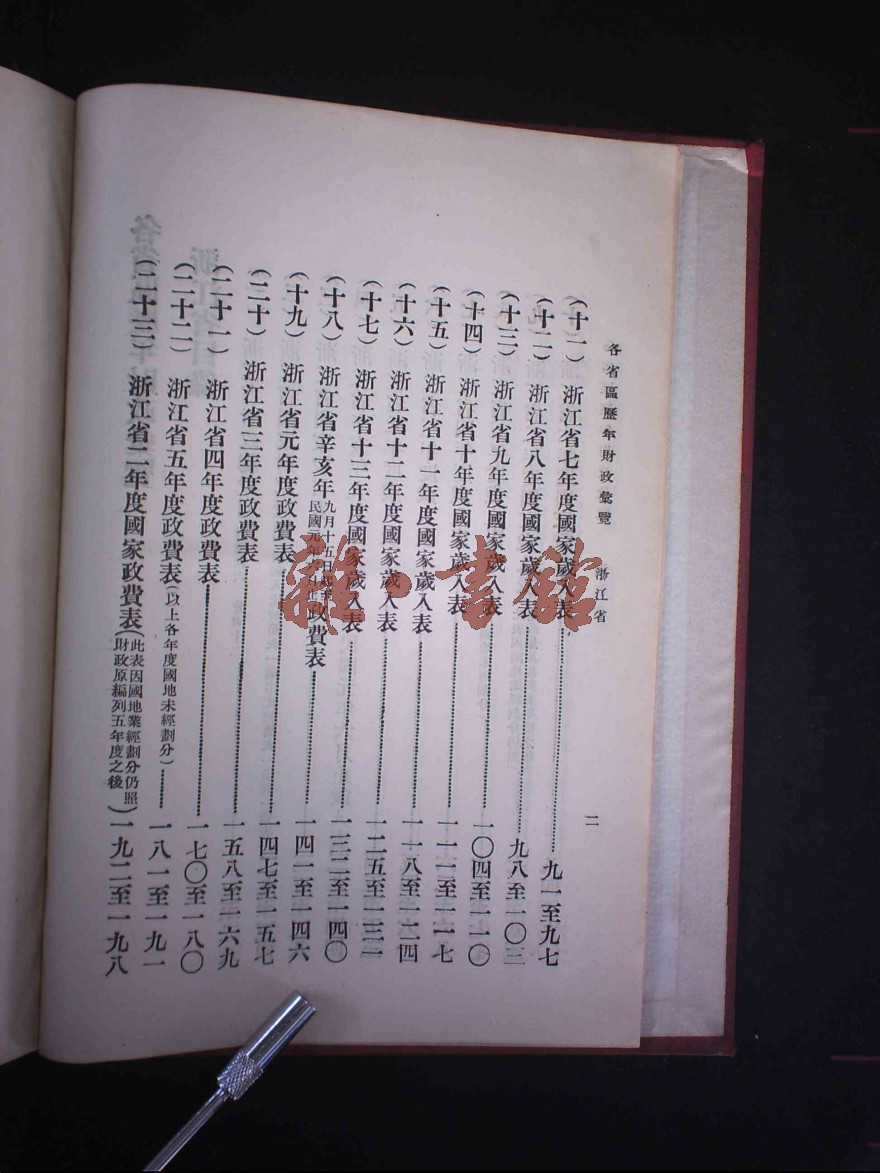 各省區歷年財政彙覽　浙江省　二
（十一）浙江省七年度國家歲入表……九一至九七
（十二）浙江省八年度國家歲入表……九八至一〇三
（十三）浙江省九年度國家歲入表……一〇四至一一〇
（十四）浙江省十年度國家歲入表……一一一至一一七
（十五）浙江省十一年度國家歲入表……一一八至一二四
（十六）浙江省十二年度國家歲入表……一二五至一三一
（十七）浙江省十三年度國家歲入表……一三二至一四〇
（十八）浙江省辛亥年九月十五日起民國元年六月止政費表……一四一至一四六
（十九）浙江省元年度政費表……一四七至一五七
（二十）浙江省三年度政費表……一五八至一六九
（二十一）浙江省四年度政費表……一七〇至一八〇
（二十二）浙江省五年度政費表（以上各年度國地未經劃分）……一八一至一九一
（二十三）浙江省二年度國家政費表（此表因國地業經劃分仍照財政原編列五年度之後）一九二至一九八
雜·書館